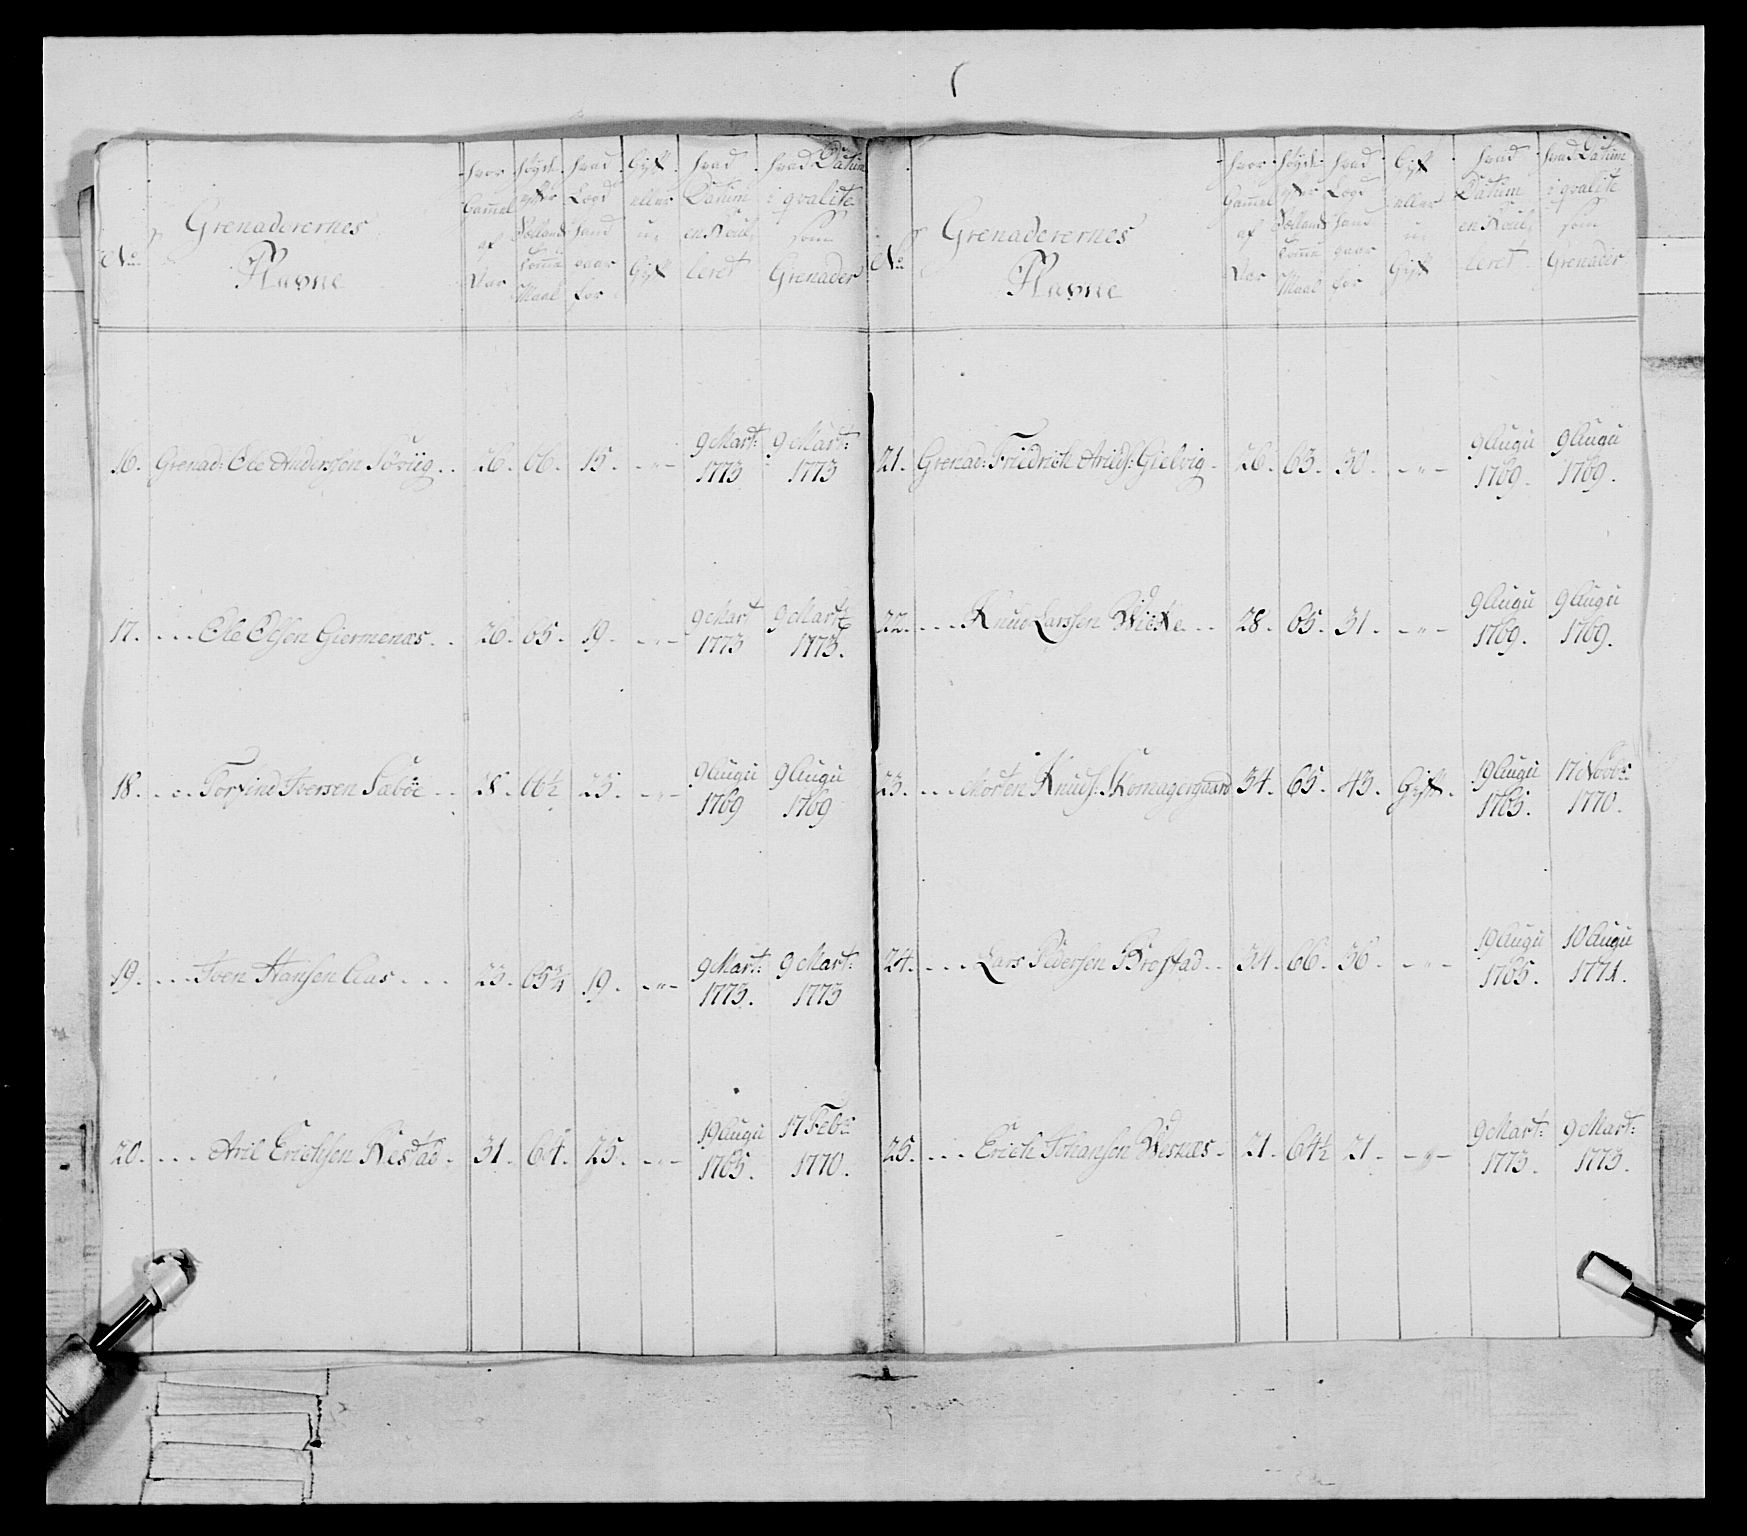 No Grenaderernes Nafne hvor Gammel af Aar høyde efter Sollands Comm Maal hvad Lægd hand gaar for Gift eller u: Gift hvad Datum en Roul leret hvad Datum i qvalite som Grenader
16. Grenad: Ole Andersen Søvüg . . 26. 66. 15. - " - 9 Mart: 1773 9 Mart: 1773
17. . . . Ole Olsen Giermenæs . . 26. 65. 19. - " - 9 Mart 1773 9 Mart: 1773.
18. . . . Torfind Iversen Saböe . . 28. 66½ 23. - " - 9 Augu 1769 9 Augu 1769
19. . . . Joen Hansen Aas . . . 23. 65¾ 19. - " - 9 Mart: 1773. 9 Mart: 1773
20. . . . Aril Erichsen Restad . 31. 64. 25. - " - 19 Augu 1765. 17 Febr: 1770.
No Grenaderernes Nafne hvor Gammel af Aar høyde efter Sollands Comm Maal hvad Lægd hand gaar for Gift eller u: Gift hvad Datum en Roul leret hvad Datum i qvalite som Grenader
21. Grenad: Friedrich Arilds: Gielvig . 26. 63. 30. - " - 9 Augu 1769. 9 Augu 1769.
22. . . . Knud Larssen . . 28. 65. 31. - " - 9 Augu 1769. 9 Augu 1769.
23. . . . Morten Knuds: Skomagergaard 34. 65. 43. Gift. 19 Augu 1765. 17 Novbr: 1770.
24. . . . Lars Pedersen Brostad . . 34. 66. 36. - " - 19 Augu 1765. 10 Augu 1771.
25. . . . Erich Johansen Wesnæs . 21. 64½ 21. - " - 9 Mart: 1773. 9 Mart: 1773.